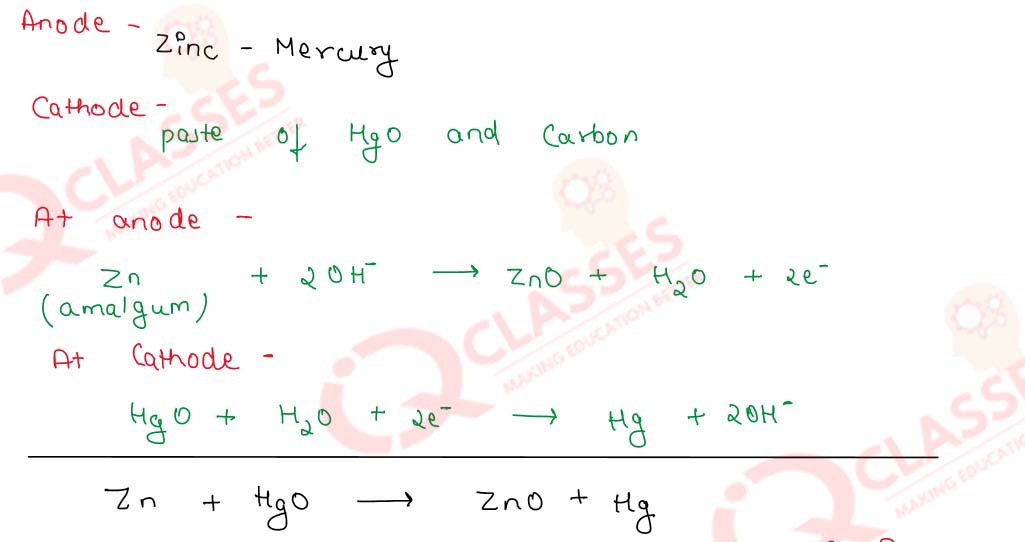 Anode -
Zinc - Mercury
Cathode -
paste of HgO and Carbon
At anode -
Zn + 2OH⁻ ⟶ ZnO + H₂O + 2e⁻
(amalgum)
At Cathode -
HgO + H₂O + 2e⁻ ⟶ Hg + 2OH⁻
Zn + HgO ⟶ ZnO + Hg
CLASSES
MAKING EDUCATION BETTER
iQ CLASSES
MAKING EDUCATION BE
CLASSE
MAKING EDUCATION